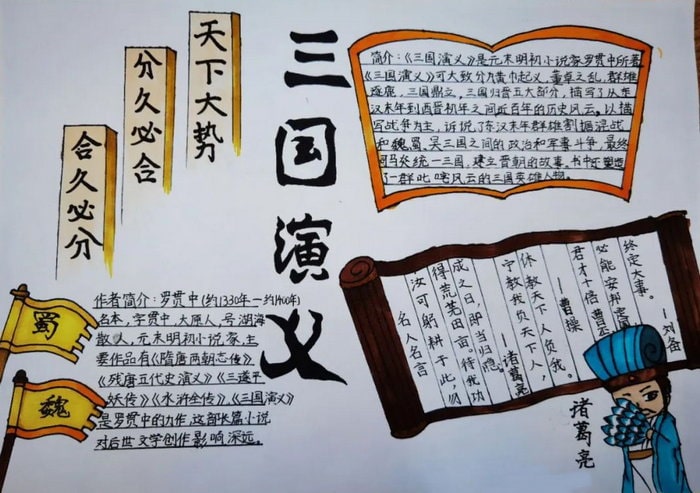 天下大势
分久必合
合久必分
三国演义
简介:《三国演义》是元末明初小说家罗贯中所著
《三国演义》可大致分为黄巾起义,董卓之乱,群雄
逐鹿,三国鼎立,三国归晋五大部分,描写了从东
汉末年到西晋初年之间近百年的历史风云。以描
写战争为主,诉说了东汉末年群雄割据混战
和魏蜀,吴三国之间的政治和军事斗争,最终
司马炎统一三国,建立晋朝的故事。书中还塑造
了一群叱咤风云的三国英雄人物。
蜀
魏
作者简介:罗贯中(约1330年—约1400年)
名本,字贯中,太原人,号湖海
散人,元末明初小说家,主
要作品有《隋唐两朝志传》
《残唐五代史演义》《三遂平
妖传》《水浒全传》《三国演义》
是罗贯中的力作,这部长篇小说
对后世文学创作影响深远。
名人名言
汝可躬耕于此,勿
得荒芜田亩。待我功
成之日,即当归隐。
——诸葛亮
宁教我负天下人,
休教天下人负我。
——曹操
君才十倍曹
必能安邦
终定大事。
——刘备
诸葛亮